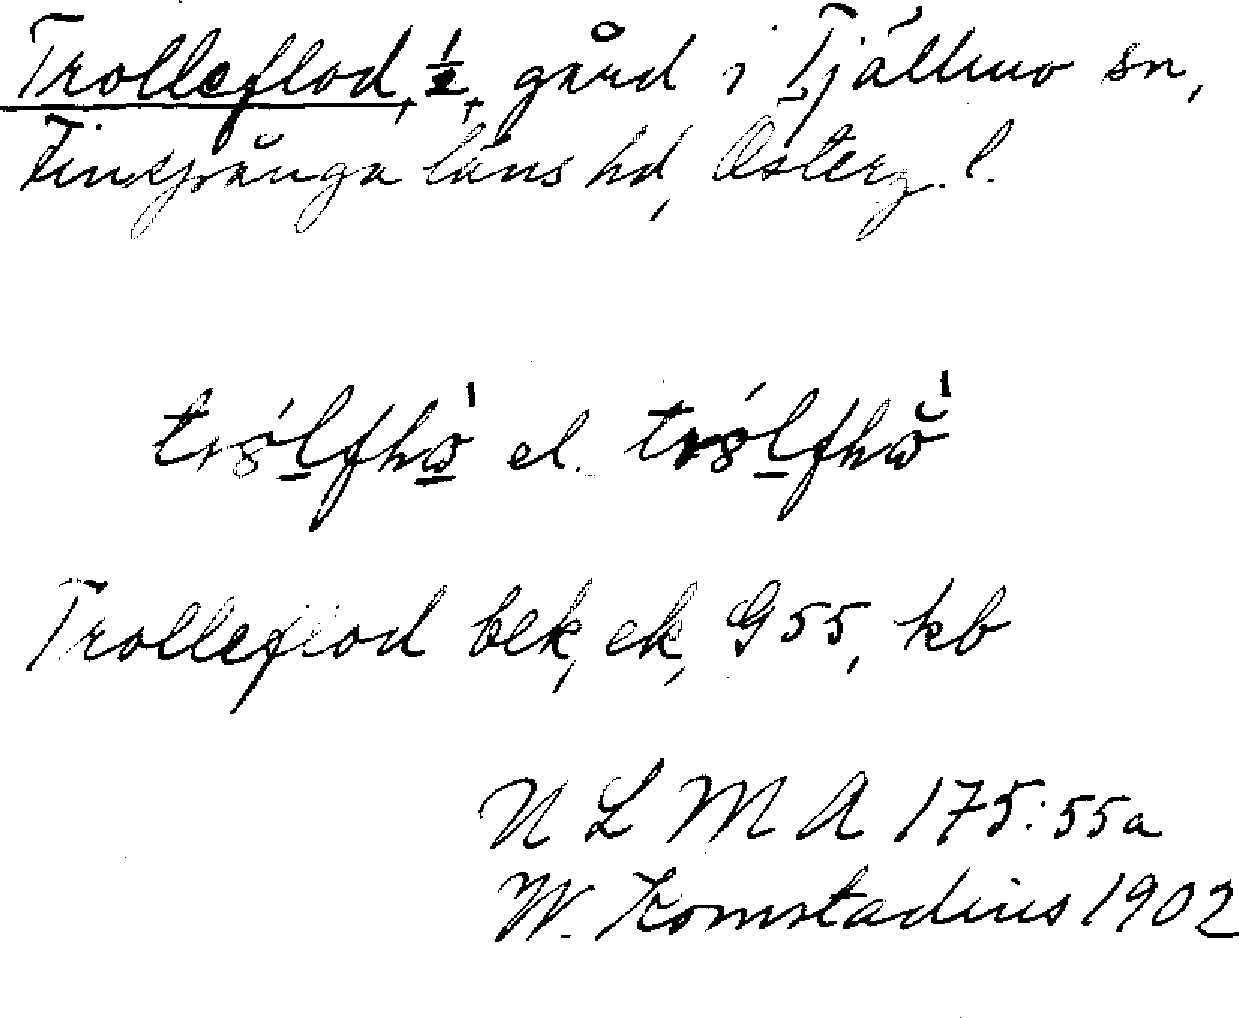 Trolleflod, ½, gård i Tjällmo sn,
Finspånga läns hd, Österg. l.
el.
Trolleflod bek, ek, G55, kb
N L M A 175:55a
W. Komstadius 1902